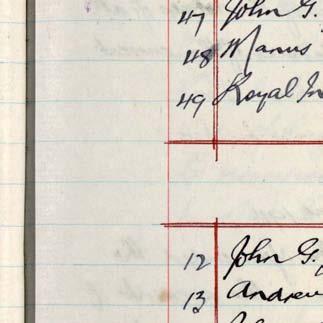 47 John G.
48 Manus
49 Royal In
12 John G.
13 Andrew